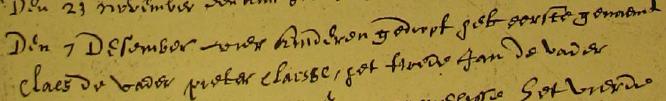 Den 23 november
Den 7 Desember vier kinderen gedoopt het eerste genaemt
Claes de vader pieter Claesse, het twede Jan de vader
het vierde